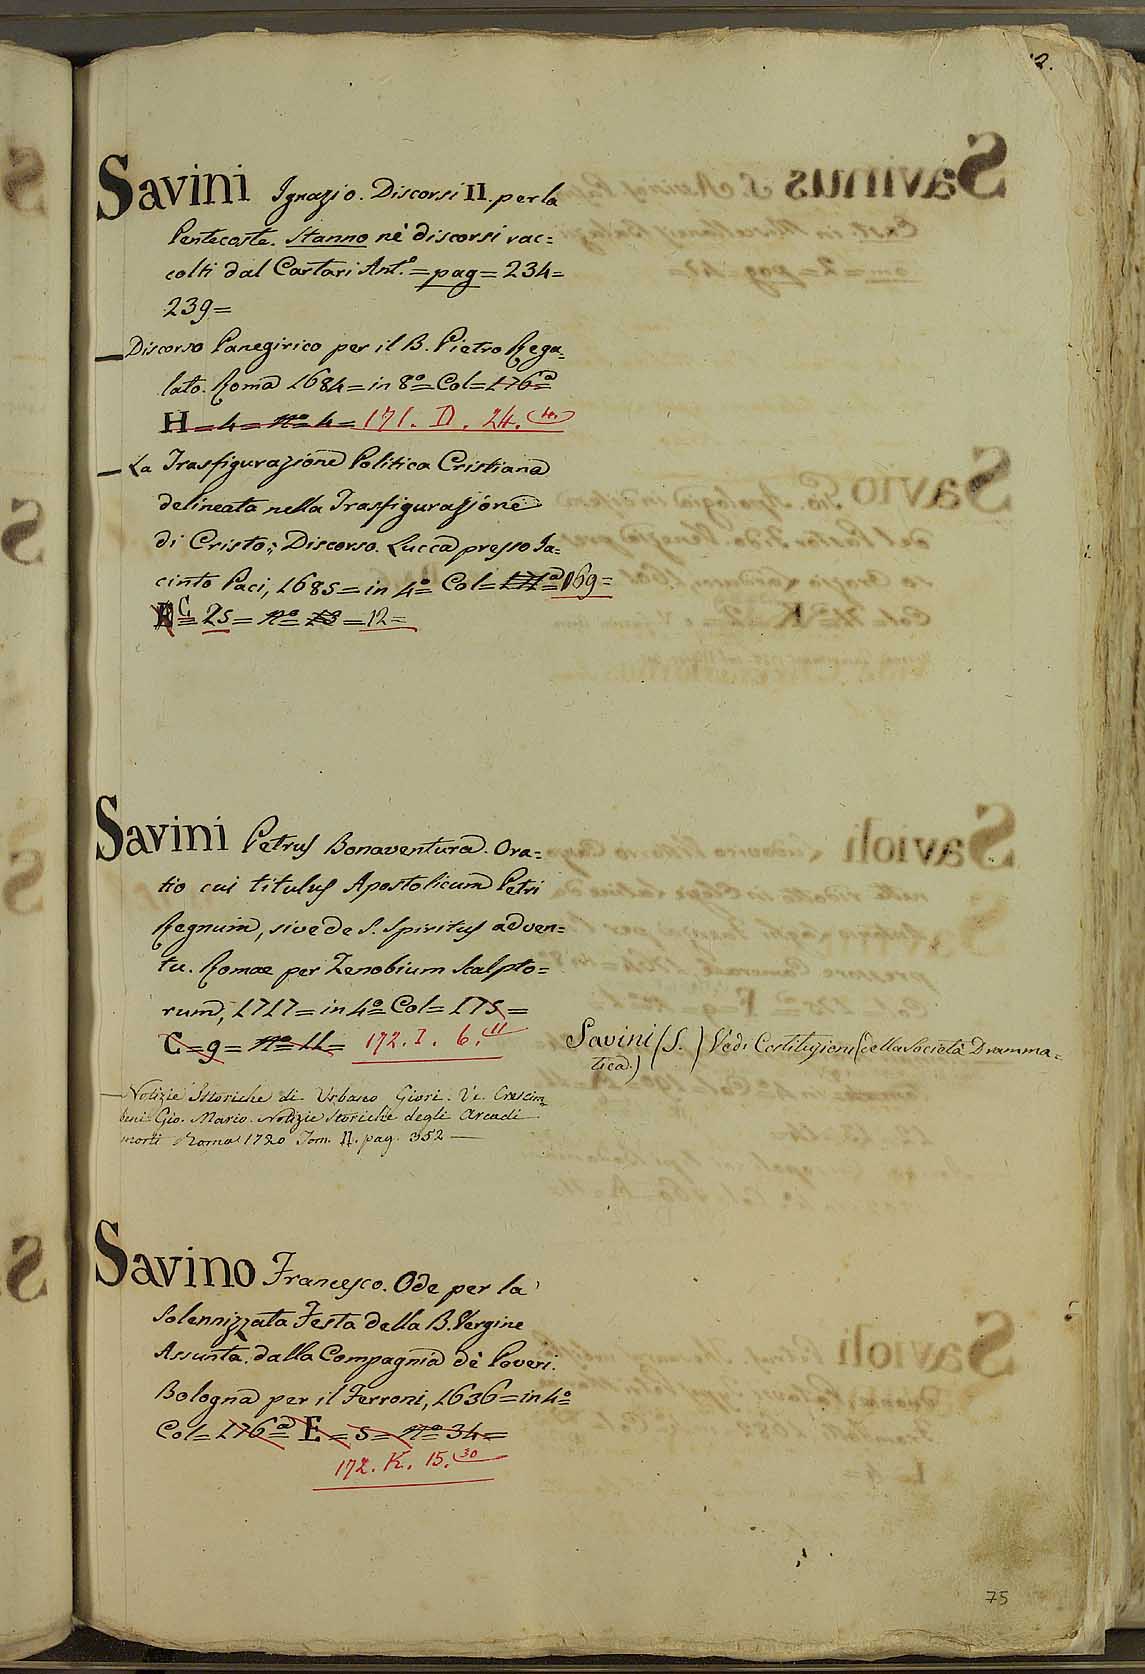 Savini Ignazio. Discorsi II. per la
Pentecoste. Stanno nè discorsi rac=
colti dal Cartari Ant.º = pag = 234=
239=
Discorso Panegirico per il B. Pietro Rega=
lato. Roma 1684= in 8º= Col= 176ª
H = 4 = nº 4 = 171. D. 24. (4.)
La Trasfigurazione Politica Cristiana
delineata nella Trasfigurazione
di Cristo; Discorso. Lucca presso Ja=
cinto Paci, 1685= in 4º Col= 169=
C= 25= nº =12=
Savini Petrus Bonaventura. Ora=
tio cui titulus Apostolicum Petri
Regnum, sive de S. Spiritus adven=
tu. Romae per Zenobium Scalpto=
rum, 1717= in 4º Col= 175=
C= 9= nº 11= 172. I. 6. 11
Notizie Istoriche di Urbano Giori. Ve. Crescim=
beni Gio. Mario. Notizie Storiche degli Arcadi
morti Roma 1720 Tom. II. pag. 352
Savini (S.) Vedi Costituzioni (della Società Dramma=
tica.)
Savino Francesco. Ode per la
Solennizzata Festa della B. Vergine
Assunta. dalla Compagnia dè Poveri.
Bologna per il Ferroni, 1636= in 4º
Col= 176ª E = 5= nº 34=
172. K. 15. 30
75